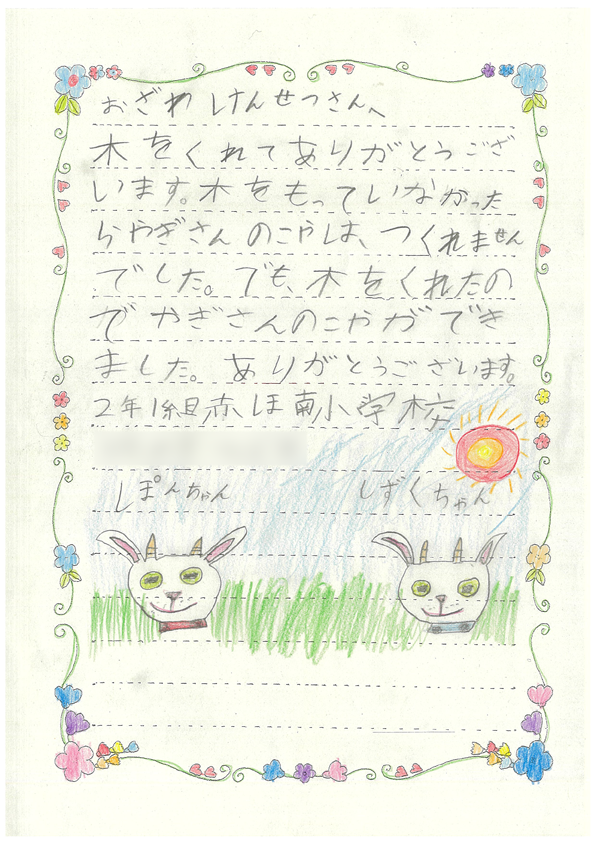 おざわけんせつさんへ
木をくれてありがとうござ
います。木をもっていなかった
らやぎさんのこやは、つくれません
でした。でも、木をくれたの
でやぎさんのこやができ
ました。ありがとうございます。
2年1組赤ほ南小学校
ぽんちゃん しずくちゃん